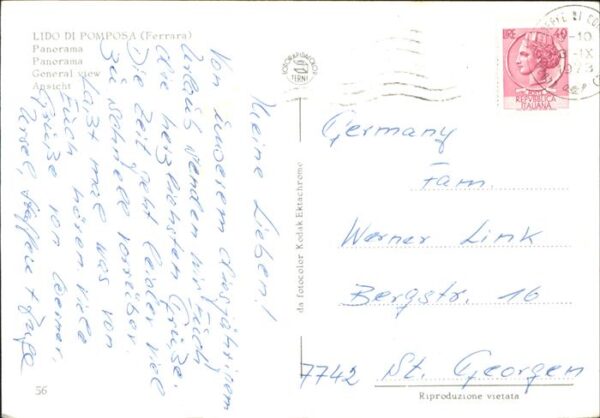 LIDO DI POMPOSA (Ferrara)
Panorama
Panorama
General view
Ansicht
Meine Lieben!
Von unserem diesjährigem
Urlaub senden wir Euch
die herzlichsten Grüße.
Die Zeit geht leider viel
zu schnell vorüber.
Laßt mal was von
Euch hören. Viele
Grüße von Werner,
Ursel, Steffen +
56
da fotocolor Kodak Ektachrome
FOTORAPIDACOLOR
TERNI
LIRE 40
REPUBBLICA
ITALIANA
-10
-IX
1973
Germany
Fam.
Werner Link
Bergstr. 16
7742 St. Georgen
Riproduzione vietata